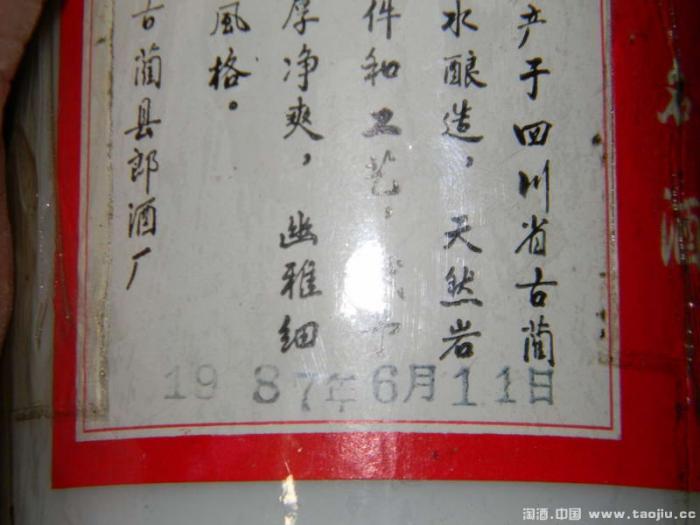 名酒
产于四川省古蔺
水酿造，天然岩
件和工艺，
厚净爽，幽雅细
風格。
古蔺县郎酒厂
1987年6月11日
淘酒.中国 www.taojiu.cc